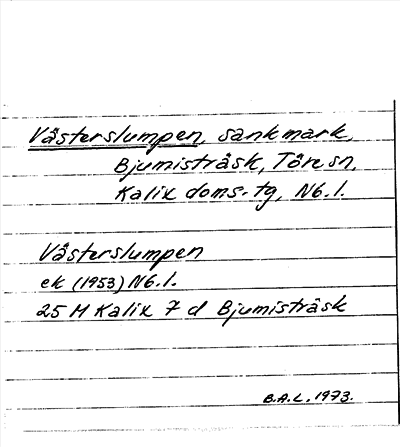 Västerslumpen, sankmark,
Bjumisträsk, Töre sn,
Kalix doms. tg, Nb.l.
Västerslumpen
ek (1953) Nb.l.
25 M Kalix 7 d Bjumisträsk
B.A.L. 1973.